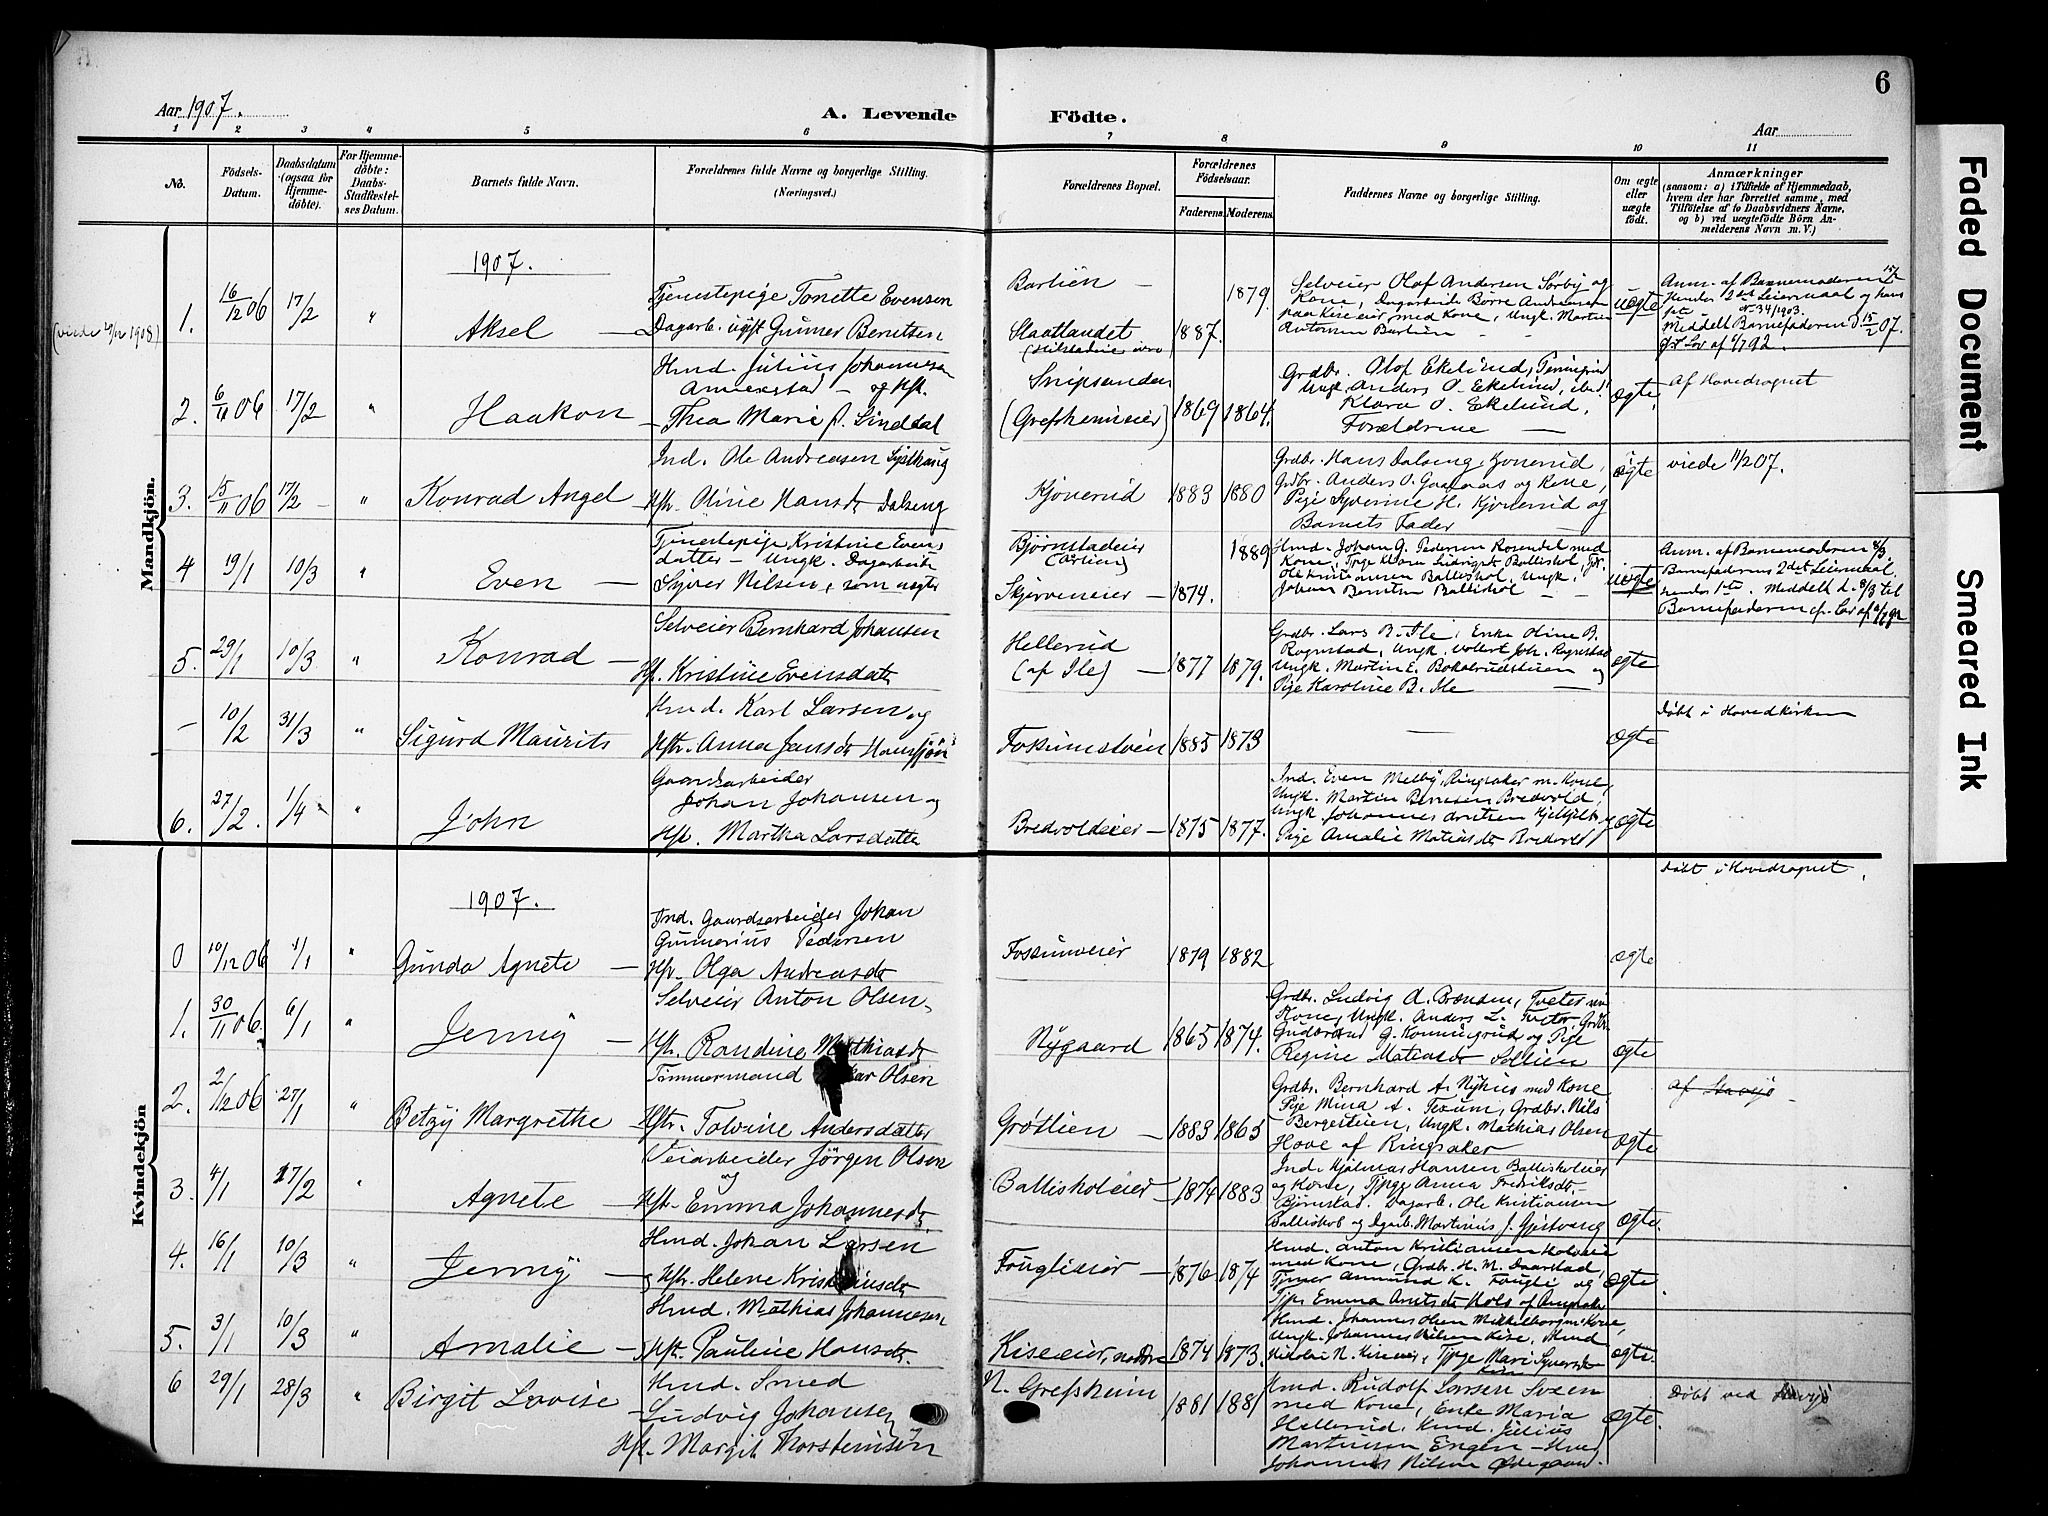 6
Aar 1907.
A. Levende Födte.
Aar
1 2 3 4 5 6 7 8 9 10 11
No.
Födsels-Datum.
Daabsdatum (ogsaa for Hjemmedöbte).
For Hjemmedöbte: Daabs-Stadfæstelses Datum.
Barnets fulde Navn.
Forældrenes fulde Navne og borgerlige Stilling. (Næringsvei.)
Forældrenes Bopæl.
Forældrenes Födselsaar.
Faderens. Moderens.
Faddernes Navne og borgerlige Stilling.
Om ægte eller uægte födt.
Anmærkninger
(saasom: a) i Tilfælde af Hjemmedaab, hvem der har forrettet samme, med Tilföielse af to Daabsvidners Navne, og b) ved uægtefödte Börn Anmelderens Navn m. V.)
Mandkjön.
1907.
(viede 1908)
1. 16/12 06 17/2 " Aksel —
Tjenestepige Tonette Evensen
Dagarb. ugift Gunner Berntsen
Bartien —
Slaatlandet
1887. 1879.
Selveier Olaf Andersen Sørby og
Kone, Dagarbeid. Børre Andreassen
paa Kiseeier med Kone, Ungk. Martin
Antonsen Bartien
uægte
Anm. af Barnemoderen 15/2
hendes 2det Leiermaal og hans
N. 34/1903.
Middelt Barnefaderen d 15/2 07.
Lov af 6/7 92.
2. 6/11 06 17/2 " Haakon
Hmd. Julius Johannesen
Annexstad — og Hst.
Thea Marie J. Linddal
Snipsanden
(Grefsheimeier)
1869 1864.
Grdbr. Olof Ekelund,
Ungk. Anders O. Ekelund, ibid.
Klara O. Ekelund,
Forældrene —
ægte.
af Hovedsognet
3. 15/11 06 17/2 — " Konrad Angel
Ind. Ole Andreasen
Hst. Oline Hansdt Dalseng
Kjønerud
1883 1880
Grdbr. Hans Dalseng,
Grdbr. Anders O. og Kone,
Pige Syverine H. Kjønerud og
Barnets Fader —
ægte
viede 11/2 07.
4 19/1 10/3 " Even —
Tjenestepige Kristine Evens
datter — Ungk. Dagarbeider
Syver Nilsen, som negter
Bjørnstadeier
Skjerveneier —
1874. 1889
Hmd. Johan G. Pedersen Rosendal med
Kone,
Ole Kristiansen Ballishol, Ungk.
Johan Berntsen Ballishol —
uægte
Anm. af Barnemoderen 8/3.
Barnefaderens 2det Leiermaal.
hendes 1ste. Meddelt d. 8/3 til
Barnefaderen cfr. Lov af 6/7 92
5. 29/1 10/3 " Konrad —
Selveier Bernhard Johansen
Hst. Kristine Evensdatter
Hellerud
(af Ile) —
1877 1879.
Grdbr. Lars B. Ile, Enke Oline B.
Rognstad, Ungk. Volert Joh. Rognstad
Ungk. Martin E. Bokalrudstuen og
Pige Karoline B. Ile —
ægte
— 10/2 31/3 " Sigurd Maurits
Hmd. Karl Larsen og
Hstr. Anna Jansdt
1885 1873
—
ægte
Døbt i Hovedkirken
6. 27/2. 1/4 " John
Gaardsarbeider
Johan Johansen og
Hst. Martha Larsdatter
Bredvoldeier —
1875 1877.
Ind. Even Melby Ringsaker m. Kone,
Ungk. Martin Berntsen Bredvold,
Ungk. Johannes
Pige Amalie Matiasdt Bredvold
ægte
Kvindekjön
1907.
Døbt i Hovedsognet.
0 10/12 06 1/1 " Gunda Agnete —
Ind. Gaardsarbeider Johan
Gunnerius Pedersen
Hst. Olga Andreasdt
Fossumeier
1879 1882
ægte
1. 30/11 06. 6/1 " Jenny —
Selveier Anton Olsen
Hst. Randine Mathiasdt
Nygaard
1865 1874.
Grdbr. Ludvig A. Brænden, Tveter med
Kone, Ungk. Anders L. Tveter, Grdbr.
Gudbrand G. og Pige
Regine Matiasdt
ægte
2. 2/12 06 27/1 " Betzy Margrethe
Tømmermand Olsen
Hstr. Tolvine Andersdatter
Grøtlien —
1883 1865
Grdbr. Bernhard A. Nyhus med Kone
Pige Mina A. Grdbr. Nils
Bergestuen, Ungk. Mathias Olsen
Hove af Ringsaker
ægte
af Stavsjø —
3. 4/1 17/2 " Agnete —
Veiarbeider Jörgen Olsen
og
Hst. Emma Johannesdt.
Ballisholeier —
1874 1883
Ind. Hjalmar Hansen Ballisholeier
og Kone, Tjpge Anna Fredriksdt,
Bjørnstad. Dagarb. Ole Kristiansen
Ballishol og Dgarb. Martinus J. Gjestvang
ægte.
4. 16/1 10/3 " Jenny —
Hmd. Johan Larsen
og Hstr. Helene Kristiansdt
Fouglieier —
1876 1874
Hmd. Anton Kristiansen
med Kone, Grdbr. H. M. Daarstad,
Amund K. Fougli og
Tjpr. Emma
ægte.
5. 3/1 10/3 " Amalie —
Hmd. Mathias Johannesen
Hst. Pauline Hansdt.
Kiseeier, nordre
1874 1873.
Hmd. Johannes Olsen Mikkelborg m. Kone,
Ungk. Johannes Nilsen Kise, Hmd
Nikolai N. Kiseeier, Tjpge Mari
ægte.
6 29/1 28/3 " Birgit Lovise
Hmd. Smed
— Ludvig Johansen
Hst. Margit Thorsteinsen
N. Grefsheim
1881 1881
Hmd. Rudolf Larsen
med Kone, Enke Maria
Hellerud, Hmd. Julius
Martinsen Engen — Hmd
Johannes Nilsen Ødegaard.
ægte.
Døbt ved Stavsjø
Faded Document
Smeared Ink